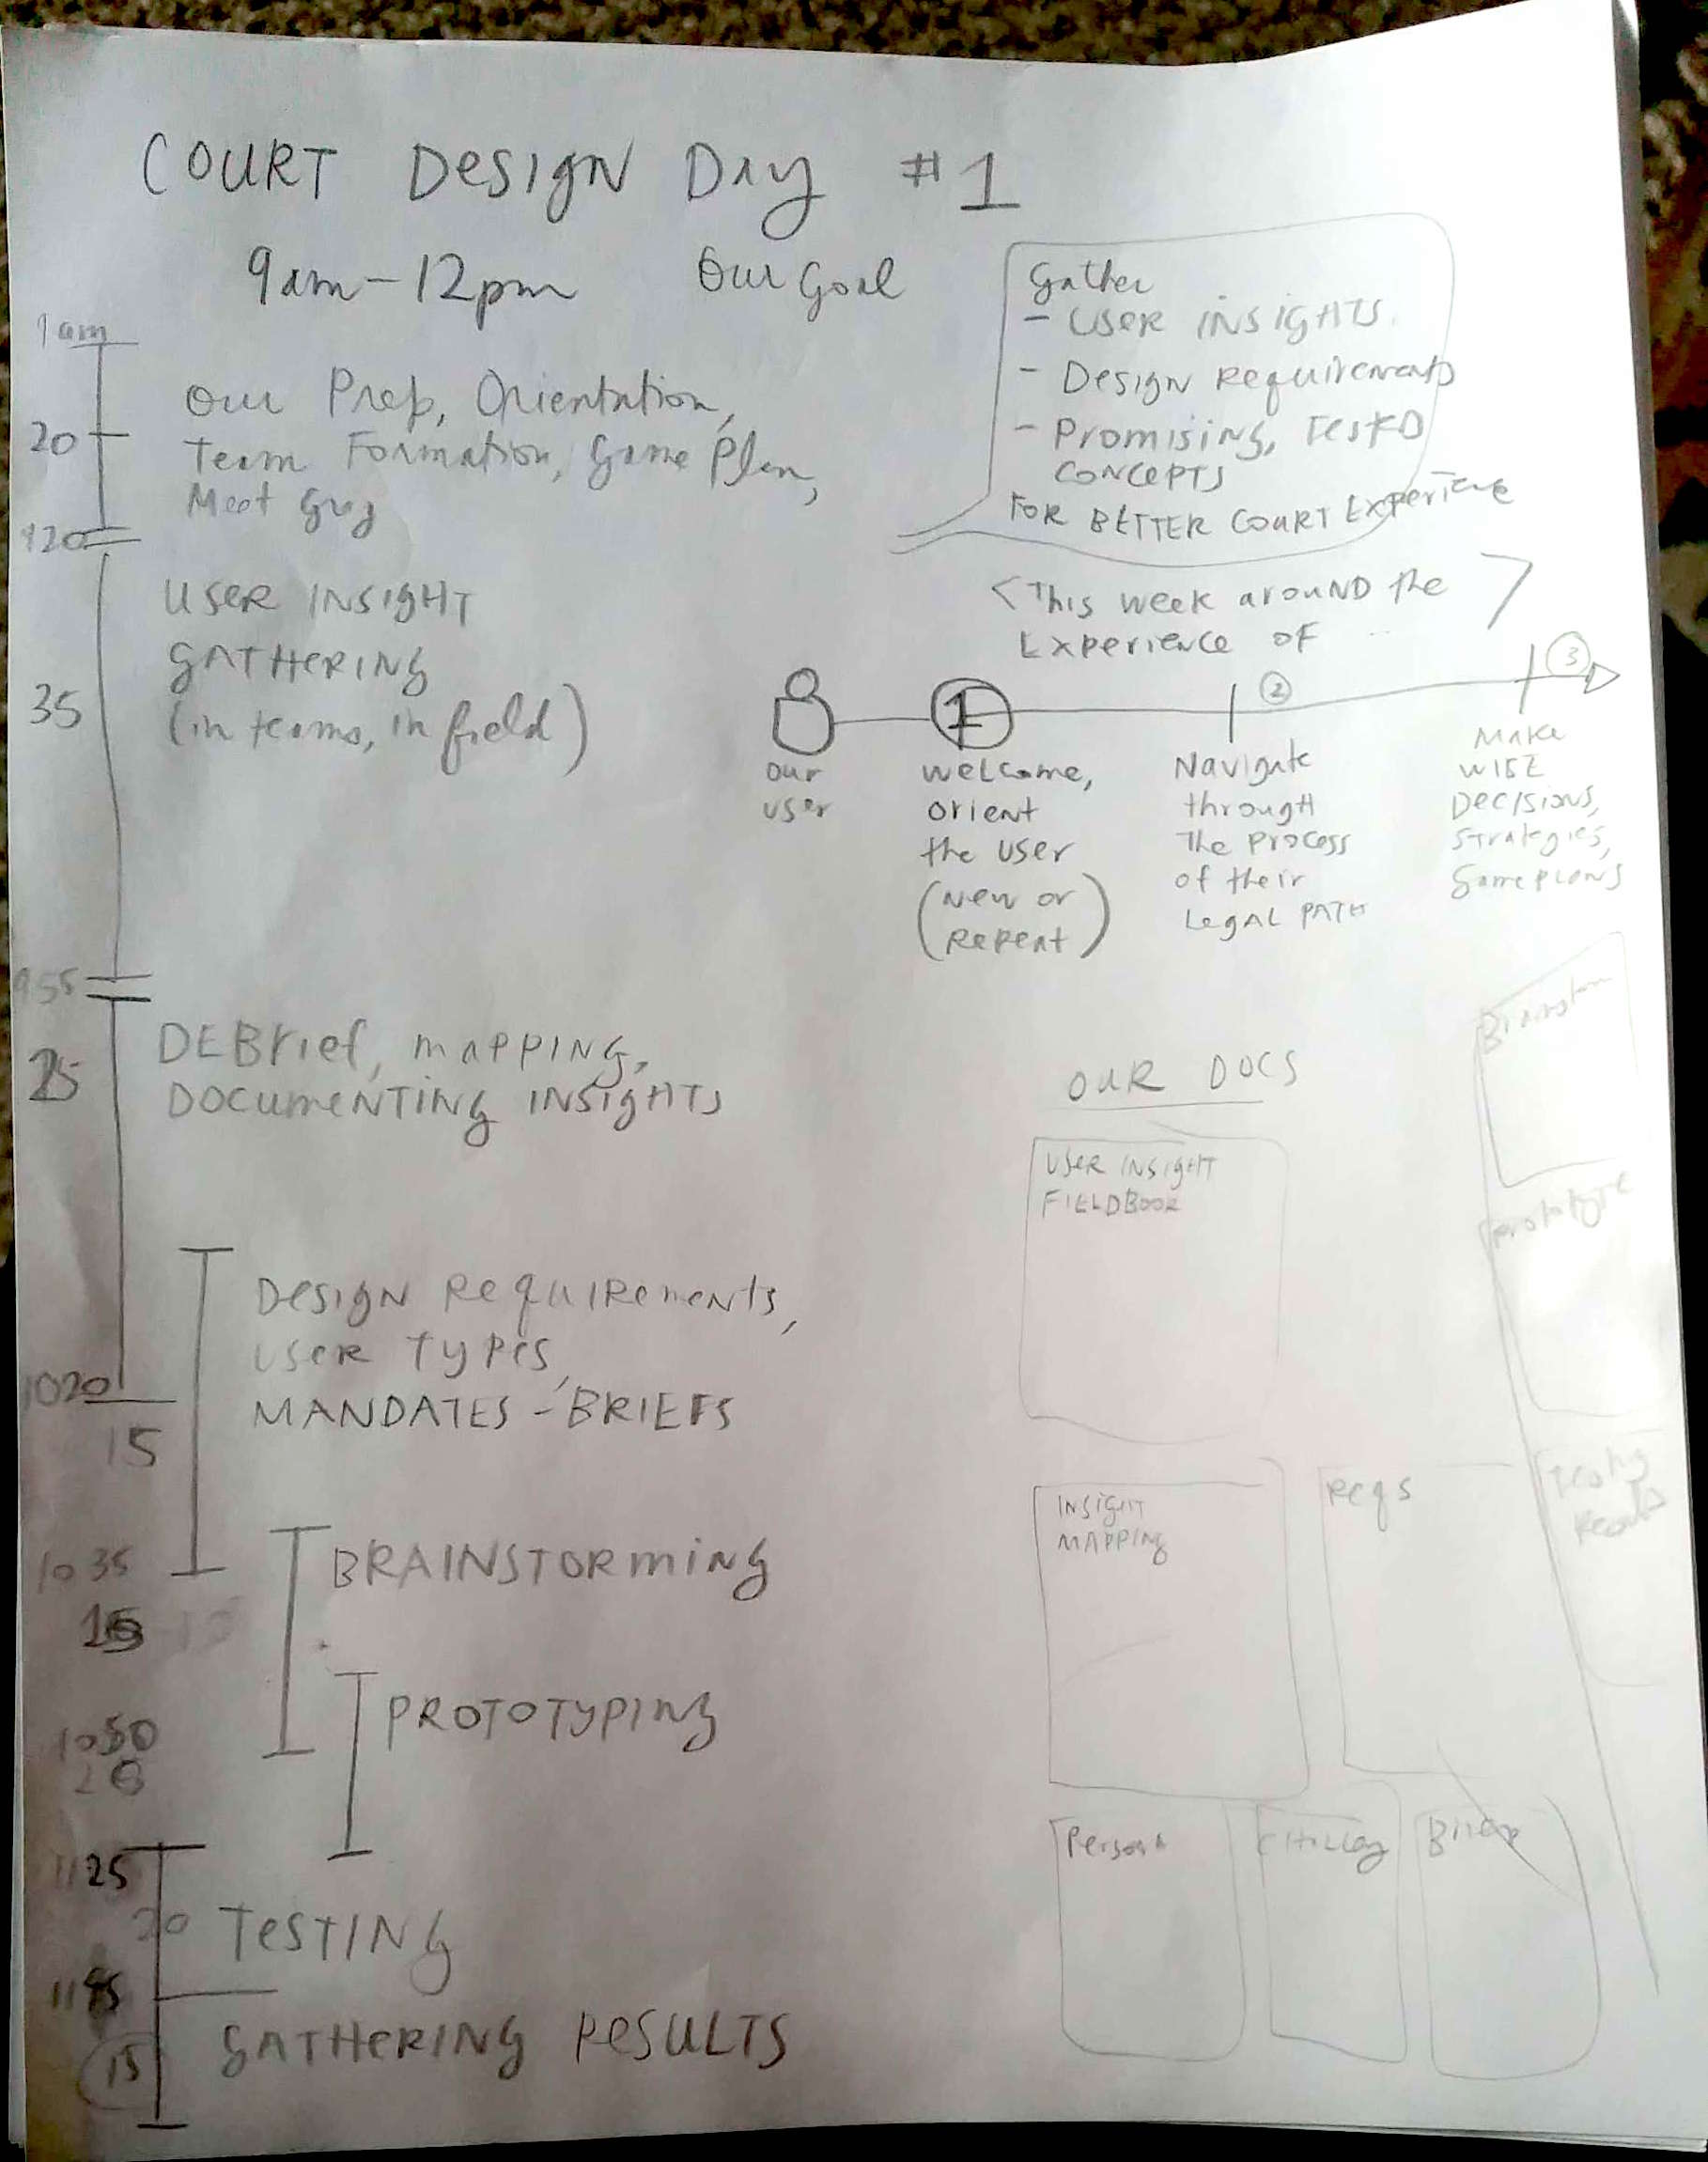 COURT DESIGN DAY #1
9am-12pm
Our Goal
Gather
- USER INSIGHTS
- DESIGN Requirements
- Promising, Tested
CONCEPTS
FOR BETTER COURT Experience
9am
20
920
35
955
25
1020
15
1035
15
1050
1125
20
1145
15
Our Prep, Orientation,
Team Formation, Game Plan,
Meet Greg
USER INSIGHT
GATHERING
(in teams, in field)
DEBrief, mapping,
DOCUMENTING INSIGHTS
Design Requirements,
USER TYPES,
MANDATES - BRIEFS
BRAINSTORMING
PROTOTYPING
TESTING
GATHERING RESULTS
<This week around the
Experience of
our
user
1
Welcome,
orient
the user
(New or
Repeat)
2
Navigate
through
The process
of their
Legal PATH
3
Make
WISE
Decisions,
Strategies,
Gameplans
OUR DOCS
USER INSIGHT
FIELDBOOK
INSIGHT
MAPPING
Reqs
Persona
Brainstorm
Prototype
Testing